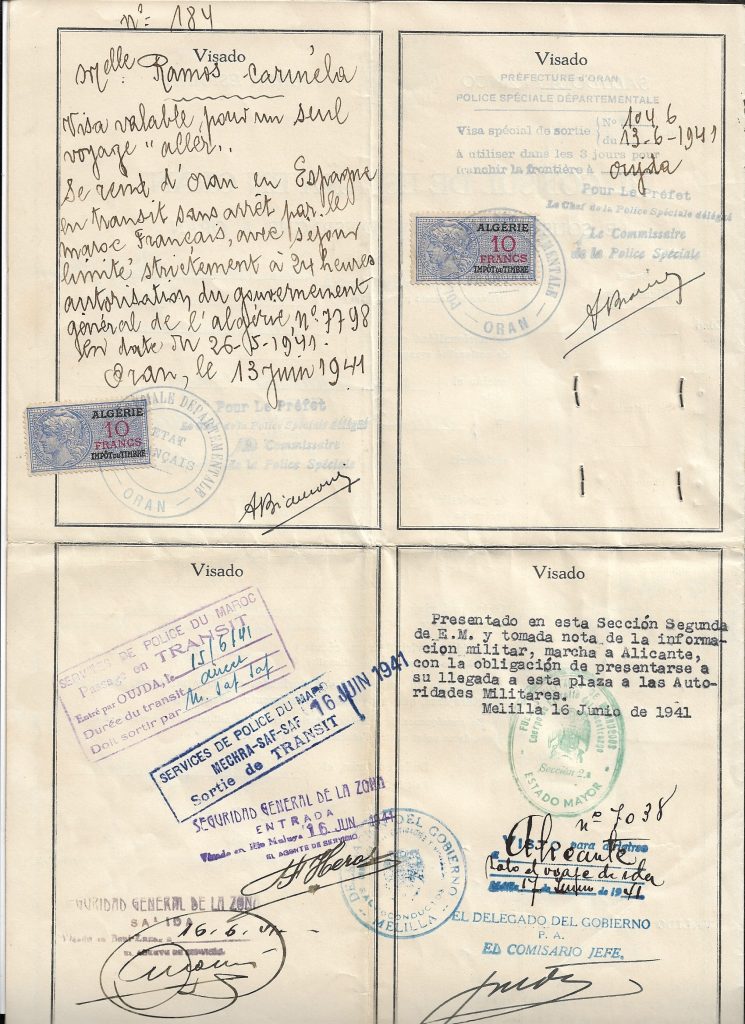 nº 184
Visado
Melle Ramos Carméla
Visa valable pour un seul
voyage "aller"..
Se rend d'Oran en Espagne
en transit sans arrêt par le
maroc Français, avec séjour
limité strictement à 24 heures
autorisation du gouvernement
général de l'algérie, Nº 7798
en date du 26-5-1941.
Oran, le 13 juin 1941
ALGÉRIE
10
FRANCS
IMPÔT DU TIMBRE
SPÉCIALE DÉPARTEMENTALE
ETAT
FRANÇAIS
ORAN
Pour Le Préfet
Le Chef de la Police Spéciale délégué
Le Commissaire
de la Police Spéciale
Visado
PRÉFECTURE D'ORAN
POLICE SPÉCIALE DÉPARTEMENTALE
Visa spécial de sortie Nº 1046
du 13-6-1941
à utiliser dans les 3 jours pour
franchir la frontière à Oujda
Pour Le Préfet
Le Chef de la Police Spéciale délégué
Le Commissaire
de la Police Spéciale
ALGÉRIE
10
FRANCS
IMPÔT DU TIMBRE
ORAN
Visado
SERVICES DE POLICE DU MAROC
Passage en TRANSIT
Entré par OUJDA, le 15/6/41
Durée du transit direct
Doit sortir par M. Saf Saf
SERVICES DE POLICE DU MAROC
MECHRA-SAF-SAF
Sortie de TRANSIT
16 JUIN 1941
SEGURIDAD GENERAL DE LA ZONA
ENTRADA
Visado en Rio Muluya 16 JUN 1941
EL AGENTE DE SERVICIO,
SEGURIDAD GENERAL DE LA ZONA
SALIDA
16.6.41
EL AGENTE DE SERVICIO,
DEL GOBIERNO
SALVOCONDUCTOS
MELILLA
Visado
Presentado en esta Sección Segunda
de E.M. y tomada nota de la informa
cion militar, marcha a Alicante,
con la obligación de presentarse a
su llegada a esta plaza a las Auto-
ridades Militares.
Melilla 16 Junio de 1941
Sección 2.a
ESTADO MAYOR
nº 7038
VISTO para dirigirse
a Alicante
Solo el viaje de ida
Melilla 17 de Junio de 1941
EL DELEGADO DEL GOBIERNO
P. A.
EL COMISARIO JEFE.